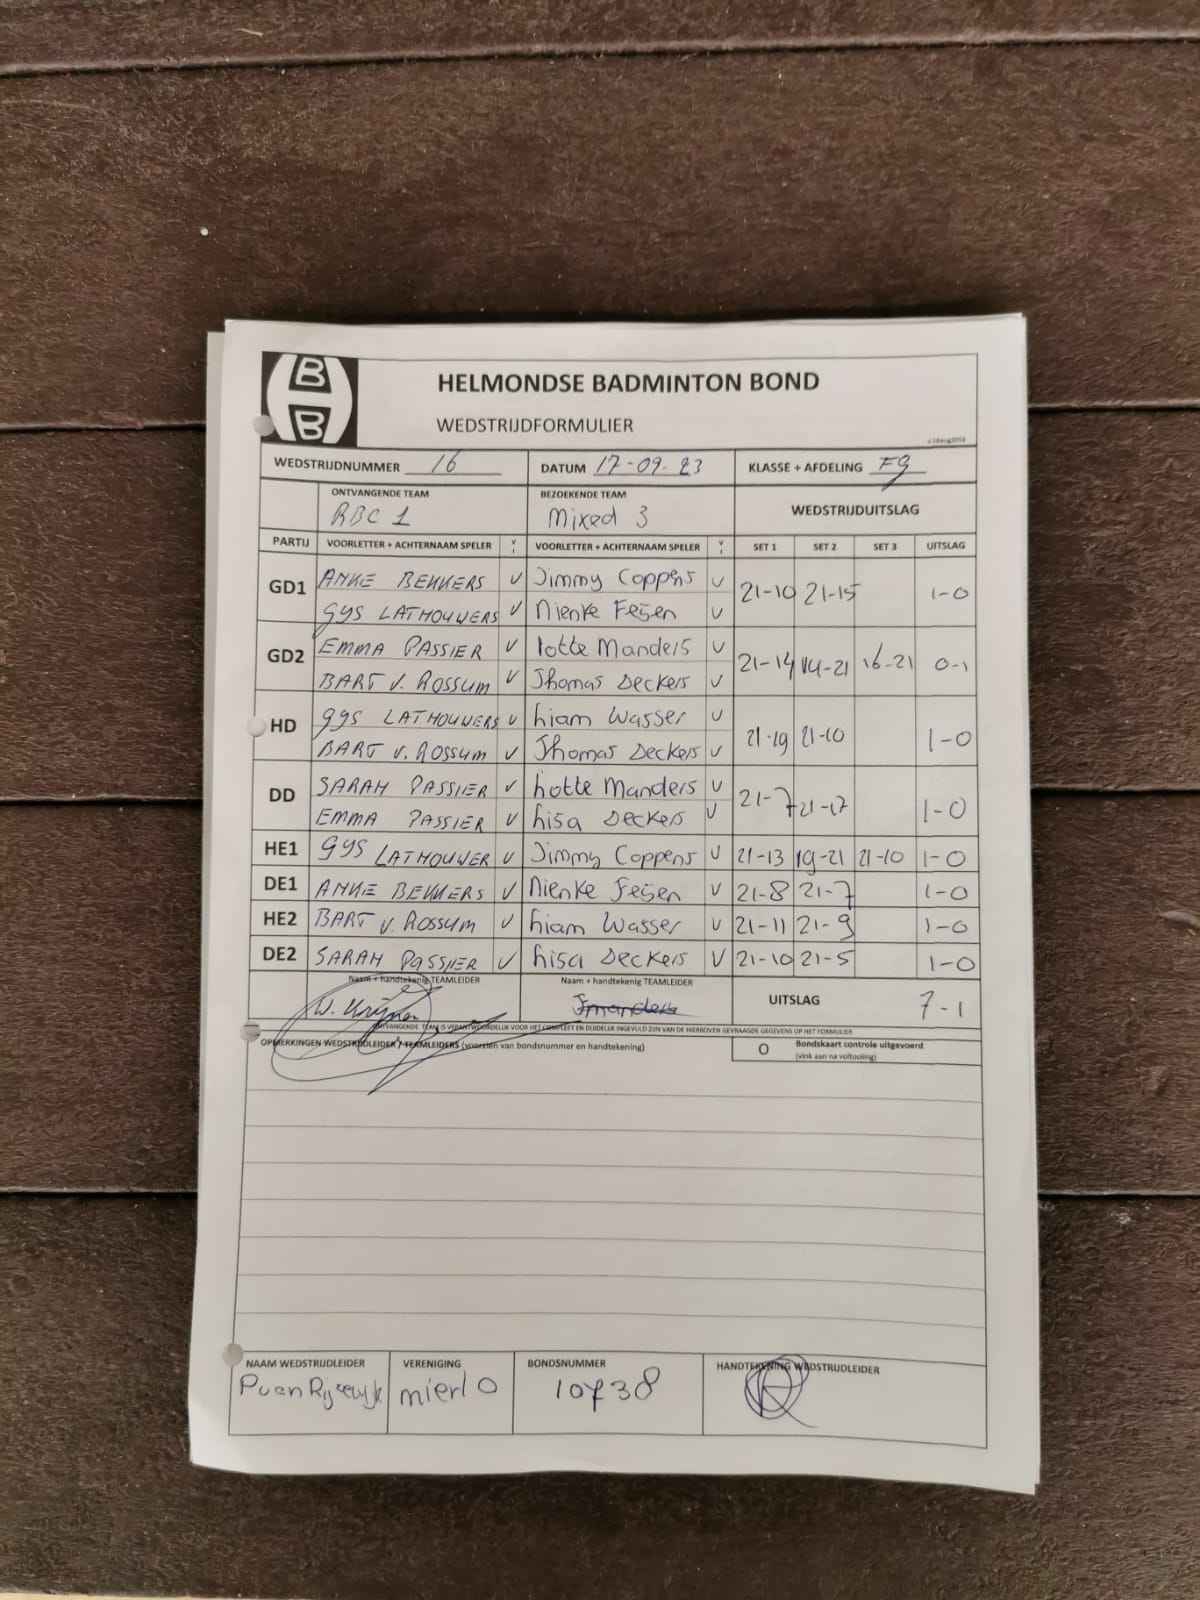 B
B
HELMONDSE BADMINTON BOND
WEDSTRIJDFORMULIER
WEDSTRIJDNUMMER 16 DATUM 17-09-23 KLASSE + AFDELING F9
ONTVANGENDE TEAM BEZOEKENDE TEAM WEDSTRIJDUITSLAG
RBC 1 Mixed 3
PARTIJ VOORLETTER + ACHTERNAAM SPELER V VOORLETTER + ACHTERNAAM SPELER V SET 1 SET 2 SET 3 UITSLAG
GD1 ANKE BEKKERS V Jimmy Coppens V 21-10 21-15 1-0
GYS LATHOUWERS V Nienke Feijen V
GD2 EMMA PASSIER V Lotte Manders V 21-14 14-21 16-21 0-1
BART V. ROSSUM V Thomas Deckers V
HD GYS LATHOUWERS V Liam Wasser V 21-19 21-10 1-0
BART V. ROSSUM V Thomas Deckers V
DD SARAH PASSIER V Lotte Manders V 21-7 21-17 1-0
EMMA PASSIER V Lisa Deckers V
HE1 GYS LATHOUWER V Jimmy Coppens V 21-13 19-21 21-10 1-0
DE1 ANKE BEKKERS V Nienke Feijen V 21-8 21-7 1-0
HE2 BART V. ROSSUM V Liam Wasser V 21-11 21-9 1-0
DE2 SARAH PASSIER V Lisa Deckers V 21-10 21-5 1-0
Naam + handtekenig TEAMLEIDER Naam + handtekenig TEAMLEIDER UITSLAG 7-1
W. Krijnen Jmanders
ONTVANGENDE TEAM IS VERANTWOORDELIJK VOOR HET COMPLEET EN DUIDELIJK INGEVULD ZIJN VAN DE HIERBOVEN GEVRAAGDE GEGEVENS OP HET FORMULIER
OPMERKINGEN WEDSTRIJDLEIDER / TEAMLEIDERS (voorzien van bondsnummer en handtekening) O Bondskaart controle uitgevoerd
(vink aan na voltooiing)
NAAM WEDSTRIJDLEIDER VERENIGING BONDSNUMMER HANDTEKENING WEDSTRIJDLEIDER
P van Rijsewijk mierlo 10738